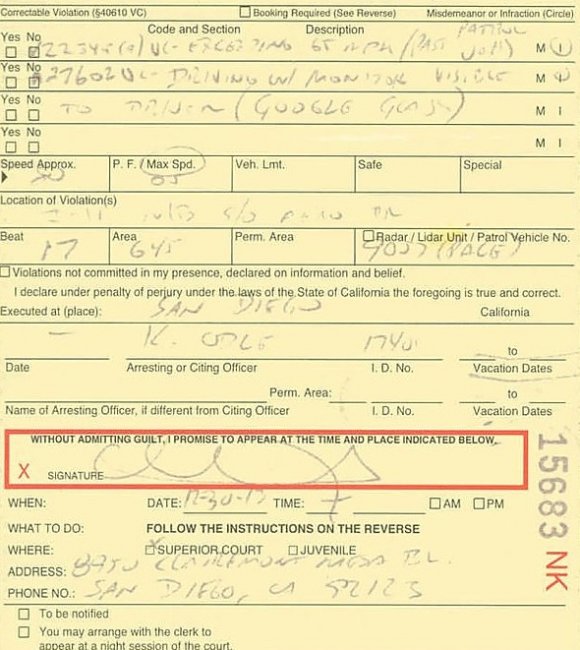 Correctable Violation (§40610 VC) Booking Required (See Reverse) Misdemeanor or Infraction (Circle)
Yes No Code and Section Description
22349(a) VC - EXCEEDING 65 MPH / PATROL M I
Yes No 27602 VC - DRIVING W/ MONITOR VISIBLE M I
Yes No TO DRIVER (GOOGLE GLASS) M I
Yes No M I
Speed Approx. P. F. / Max Spd. Veh. Lmt. Safe Special
65
Location of Violation(s)
Beat Area Perm. Area Radar / Lidar Unit / Patrol Vehicle No.
17 645 (PACE)
Violations not committed in my presence, declared on information and belief.
I declare under penalty of perjury under the laws of the State of California the foregoing is true and correct.
Executed at (place): SAN DIEGO California
K. to
Date Arresting or Citing Officer I. D. No. Vacation Dates
Perm. Area: to
Name of Arresting Officer, if different from Citing Officer I. D. No. Vacation Dates
WITHOUT ADMITTING GUILT, I PROMISE TO APPEAR AT THE TIME AND PLACE INDICATED BELOW.
X SIGNATURE
15683 NK
WHEN: DATE: TIME: AM PM
WHAT TO DO: FOLLOW THE INSTRUCTIONS ON THE REVERSE
WHERE: SUPERIOR COURT JUVENILE
ADDRESS: 8950 CLAIREMONT MESA BL.
PHONE NO.: SAN DIEGO, CA 92123
To be notified
You may arrange with the clerk to
appear at a night session of the court.